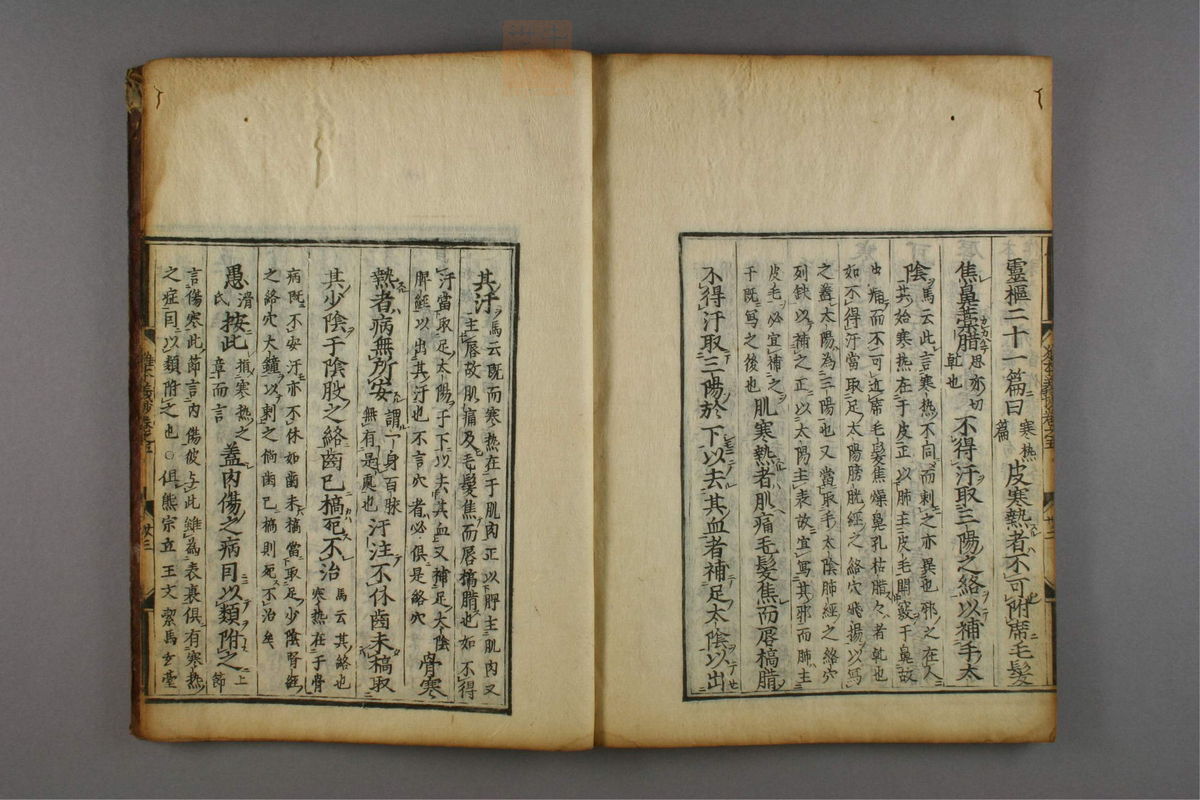 靈樞二十一篇曰寒熱篇皮寒熱者不可附席毛髮
焦鼻藁腊思亦切乾也不得汗取三陽之絡以補手太
陰馬云此言寒熱不同而刺之亦異也邪之在人
其始寒熱在于皮正以肺主皮毛開竅于鼻故
虫痛而不可近席毛髮焦燥鼻孔枯腊々者乾也
如不得汗當取足太陽膀胱經之絡穴飛揚以寫
之蓋太陽為三陽也又當取手太陰肺經之絡穴
列缺以補之正以太陽主表故宜寫其邪而肺主
皮毛必宜補之
于既寫之後也肌寒熱者肌痛毛髮焦而唇槁腊
不得汗取三陽於下以去其血者補足太陰以出
其汗馬云既而寒熱在于肌肉正以脾主肌肉又
主唇故肌痛及毛髮焦而唇槁腊也如不得
汗當取足太陽于下以去其血又補足大陰
脾經以出其汗也不言穴者必俱是絡穴骨寒
熱者病無所安謂一身百脉無有是處也汗注不休齒未槁取
其少陰于陰股之絡齒已槁死不治馬云其絡也寒熱在于骨
病既不安汗亦不休如齒未槁當取足少陰腎經
之絡穴大鐘以刺之倘齒已槁則死不治矣
愚滑氏按此損寒熱之章而言蓋內傷之病因以類附之上節
言傷寒此節言內傷彼与此雖為表裏俱有寒熱
之症因以類附之也○俱熊宗立王文潔馬玄臺